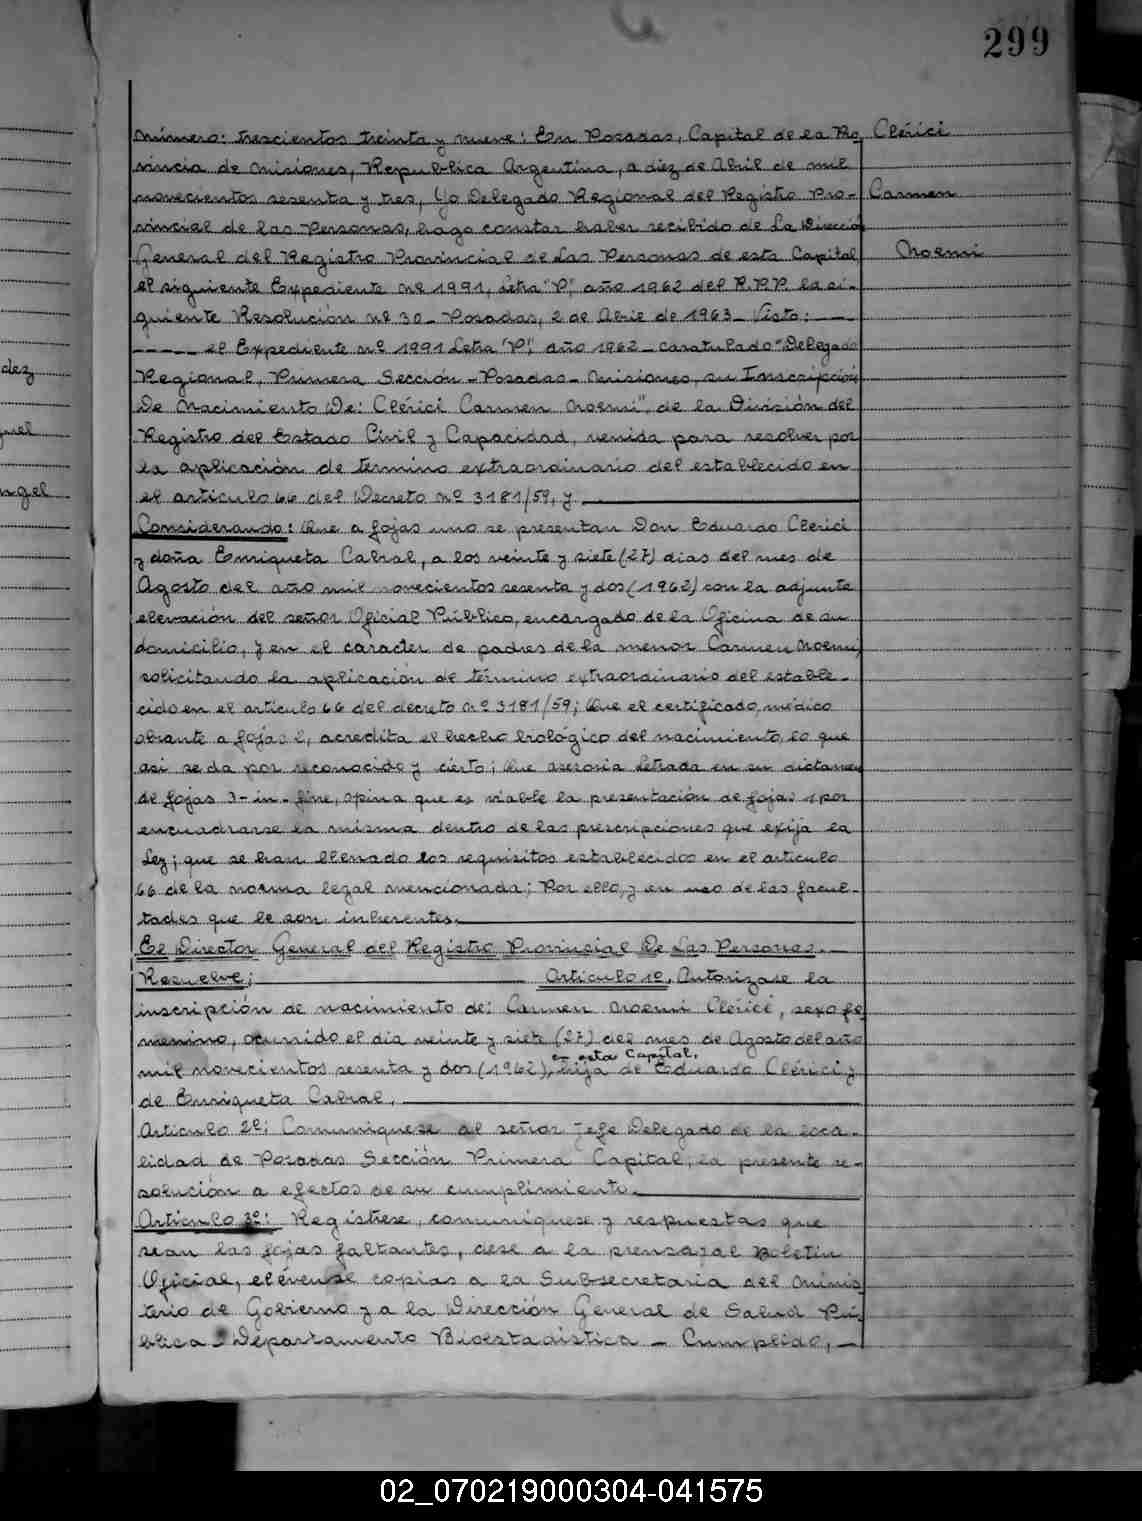 299
Número: trescientos treinta y nueve: En Posadas, Capital de la Pro-
vincia de Misiones, Republica Argentina, a diez de Abril de mil
novecientos sesenta y tres, Yo Delegado Regional del Registro Pro-
vincial de las Personas, hago constar haber recibido de La Dirección
General del Registro Provincial de Las Personas de esta Capital
el siguiente Expediente Nº 1991, Letra "P", año 1962 del R.P.P. la si-
guiente Resolución nº 30_ Posadas, 2 de Abril de 1963_ Visto: ____
_____ el Expediente nº 1991 Letra "P", año 1962_ caratulado "Delegado
Regional, Primera Sección - Posadas - Misiones, su Inscripción
De Nacimiento De: Clérici Carmen Noemi", de la División del
Registro del Estado Civil y Capacidad, venida para resolver por
la aplicación de termino extraordinario del establecido en
el articulo 66 del Decreto nº 3181/59, y
Considerando: Que a fojas uno se presentan Don Eduardo Clérici
y doña Enriqueta Cabral, a los veinte y siete (27) dias del mes de
Agosto del año mil novecientos sesenta y dos (1962) con la adjunta
elevación del señor Oficial Público, encargado de la Oficina de su
domicilio, y en el caracter de padres de la menor Carmen Noemi,
solicitando la aplicación de término extraordinario del estable-
cido en el articulo 66 del decreto nº 3181/59; Que el certificado, médico
obrante a fojas 2, acredita el hecho biológico del nacimiento, lo que
asi se da por reconocido y cierto; Que asesoria Letrada en su dictamen
de fojas 3-in-fine, opina que es viable la presentación de fojas 1 por
encuadrarse la misma dentro de las prescripciones que exija la
Ley; que se han llenado los requisitos establecidos en el articulo
66 de la norma legal mencionada; Por ello, y en uso de las facul-
tades que le son inherentes.
El Director General del Registro Provincial De Las Personas.
Resuelve; Articulo 1º. Autorizase la
inscripción de nacimiento de: Carmen Noemi Clérici, sexo fe-
menino, ocurrido el día veinte y siete (27) del mes de Agosto del año
en esta Capital,
mil novecientos sesenta y dos (1962), hija de Eduardo Clérici y
de Enriqueta Cabral.
Articulo 2º: Comuniquese al señor Jefe Delegado de la loca-
lidad de Posadas Sección Primera Capital, la presente re-
solución a efectos de su cumplimiento.
Articulo 3º: Registrese, comuniquese y respuestas que
sean las fojas faltantes, dese a la prensa y al Boletin
Oficial, elévense copias a la Subsecretaria del Minis-
terio de Gobierno y a la Dirección General de Salud Pú-
blica - Departamento Bioestadistica - Cumplido, -
Clérici
Carmen
Noemi
dez
guel
ngel
02_070219000304-041575